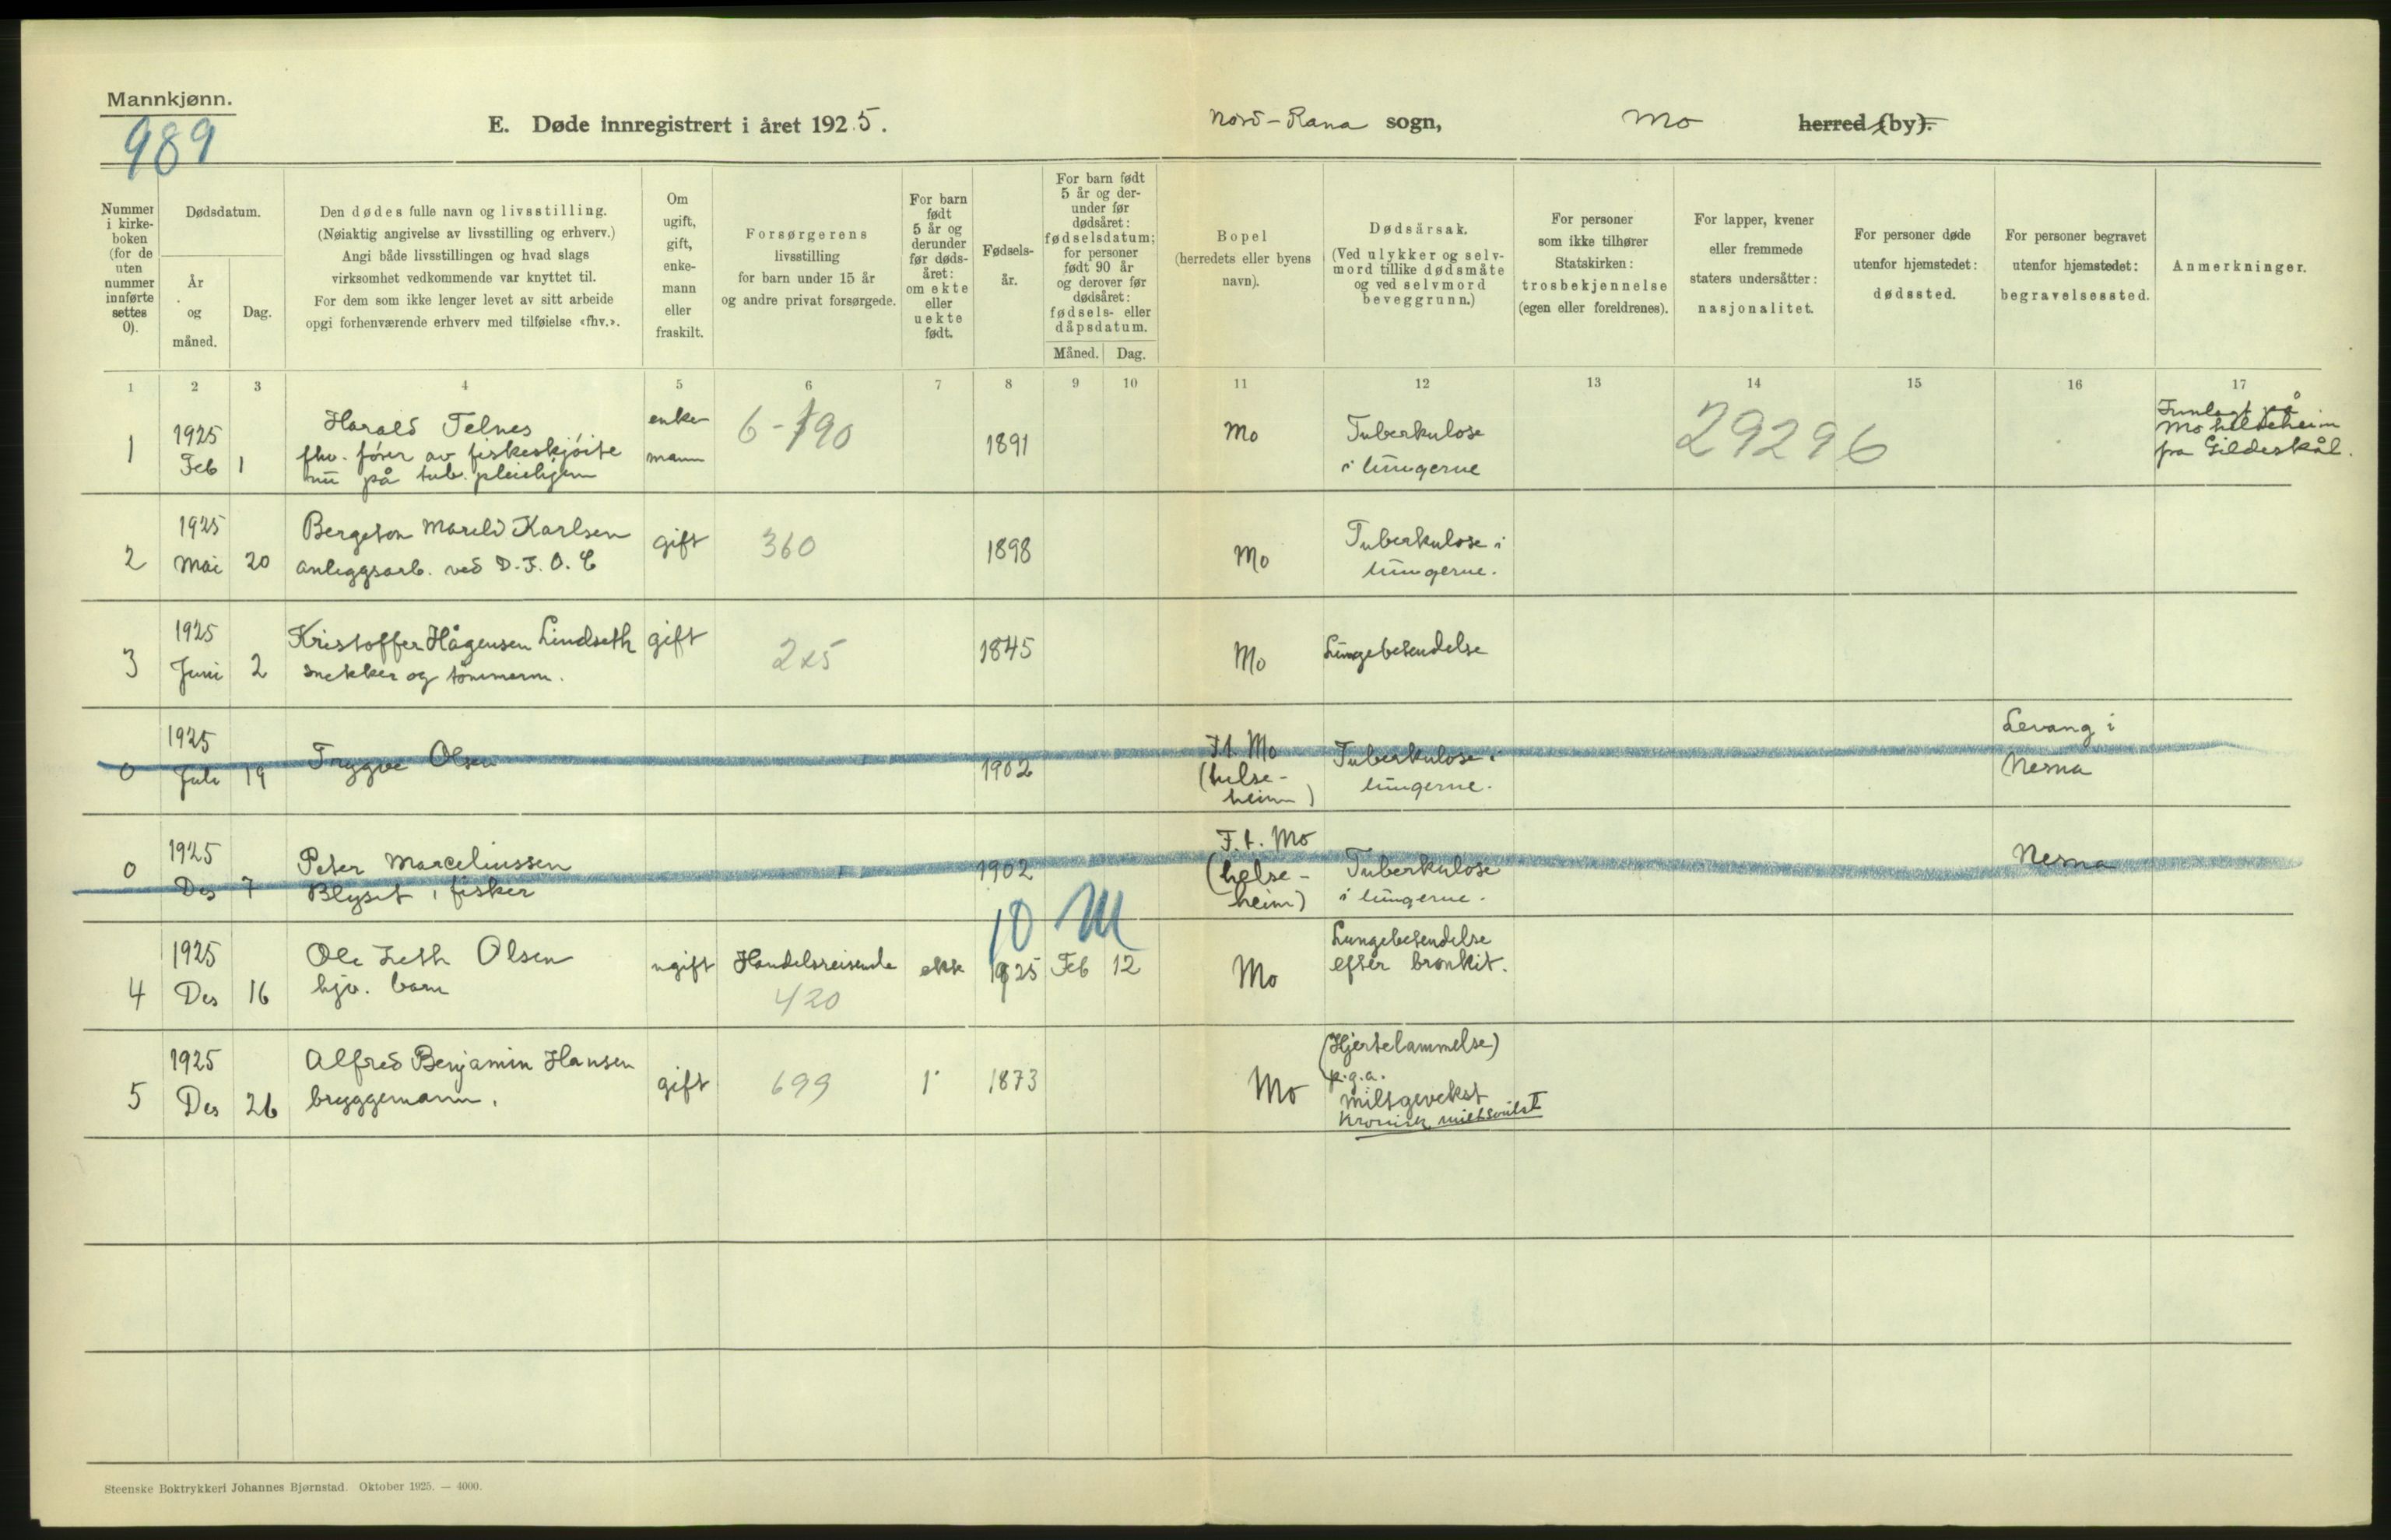 Mannkjønn.
989
E. Døde innregistrert i året 1925.
Nord-Rana sogn,
Mo
herred (by).
Nummer i kirkeboken (for de uten nummer innførte settes 0).
Dødsdatum.
År og måned.
Dag.
Den dødes fulle navn og livsstilling.
(Nøiaktig angivelse av livsstilling og erhverv.)
Angi både livsstillingen og hvad slags
virksomhet vedkommende var knyttet til.
For dem som ikke lenger levet av sitt arbeide
opgi forhenværende erhverv med tilføielse «fhv.».
Om ugift, gift, enkemann eller fraskilt.
Forsørgerens
livsstilling
for barn under 15 år
og andre privat forsørgede.
For barn født 5 år og derunder før dødsåret: om ekte eller uekte født.
Fødselsår.
For barn født 5 år og derunder før dødsåret: fødselsdatum; for personer født 90 år og derover før dødsåret: fødsels- eller dåpsdatum.
Måned.
Dag.
Bopel
(herredets eller byens
navn).
Dødsårsak.
(Ved ulykker og selv-
mord tillike dødsmåte
og ved selvmord
beveggrunn.)
For personer
som ikke tilhører
Statskirken:
trosbekjennelse
(egen eller foreldrenes).
For lapper, kvener
eller fremmede
staters undersåtter:
nasjonalitet.
For personer døde
utenfor hjemstedet:
dødssted.
For personer begravet
utenfor hjemstedet:
begravelsessted.
Anmerkninger.
1 2 3 4 5 6 7 8 9 10 11 12 13 14 15 16 17
1 1925 Feb 1
Harald Telnes
fhv. fører av fiskeskjøite
nu på tub. pleiehjem
enke-
mann
6-190
1891
Mo
Tuberkulose
i lungerne
29296
Innlagt på
Mo helseheim
fra Gildeskål.
2 1925 Mai 20
Bergeton Mareld Karlsen
anleggsarb. ved D.F.O.C
gift
360
1898
Mo
Tuberkulose i
lungerne.
3 1925 Juni 2
Kristoffer Hågensen Lindseth
snekker og tømmerm.
gift
225
1845
Mo
Lungebetendelse
0 1925 Juli 19
Trygve Olsen
1902
F.t. Mo
(helse-
heim)
Tuberkulose i
lungerne.
Levang i
Nesna
0 1925 Des 7
Peter Marceliussen
Blyset, fisker
1902
F.t. Mo
(helse-
heim)
Tuberkulose
i lungerne.
Nesna
10 M
4 1925 Des 16
Ole Zeth Olsen
hjv. barn
ugift
Handelsreisende
420
ekte
1925 Feb 12
Mo
Lungebetendelse
efter bronkit.
5 1925 Des 26
Alfred Benjamin Hansen
bryggemann.
gift
699
1
1873
Mo
(Hjertelammelse)
p.g.a.
miltgevekst
Kronisk miltsvulst
Steenske Boktrykkeri Johannes Bjørnstad. Oktober 1925. — 4000.